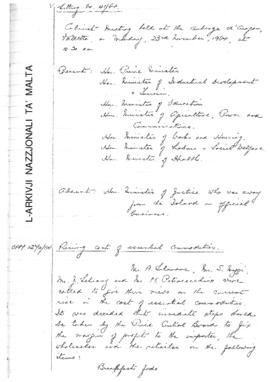 Sitting No. 41/64.
Cabinet Meeting held at the Auberge d'Aragon,
Valletta on Monday, 23rd November, 1964, at
10.30 am
Present: Hon. Prime Minister
Hon. Minister of Industrial Development
& Tourism.
Hon. Minister of Education
Hon. Minister of Agriculture, Power and
Communications.
Hon. Minister of Works and Housing.
Hon. Minister of Labour & Social Welfare
Hon. Minister of Health.
Absent: Hon. Minister of Justice who was away
from the Island on official
business.
L-ARKIVJI NAZZJONALI TA' MALTA
Rising cost of essential commodities.
Mr. A. Mr. S.
Mr. J. and Mr. M. were
called to give their views on the current
rise in the cost of essential commodities.
It was decided that immediate steps should
be taken by the Price Control Board to fix
the margins of profit to the importer, the
wholesaler and the retailer on the following
items:
Breakfast foods